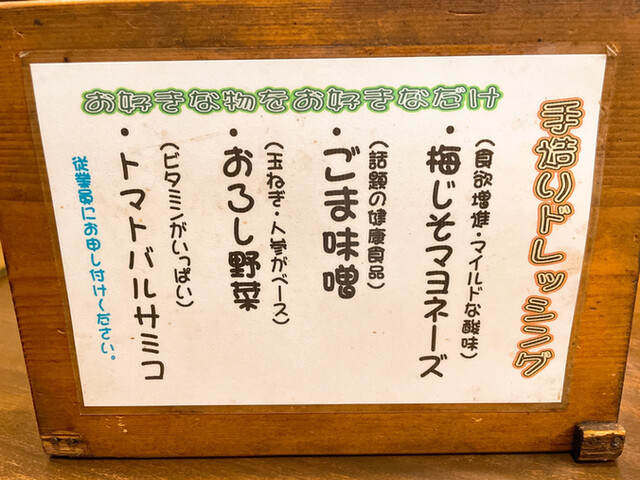 手造りドレッシング
お好きな物をお好きなだけ
(食欲増進・マイルドな酸味)
・梅じそマヨネーズ
(話題の健康食品)
・ごま味噌
(玉ねぎ・人参がベース)
・おろし野菜
(ビタミンがいっぱい)
・トマトバルサミコ
従業員にお申し付けください。